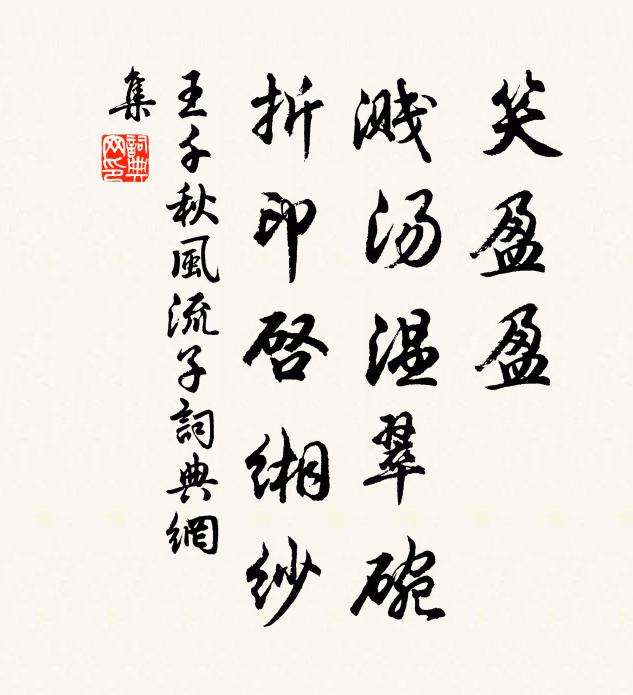 笑盈盈
溅汤温翠碗
折印启缃纱
王千秋風流子詞典網
集
詞典网印